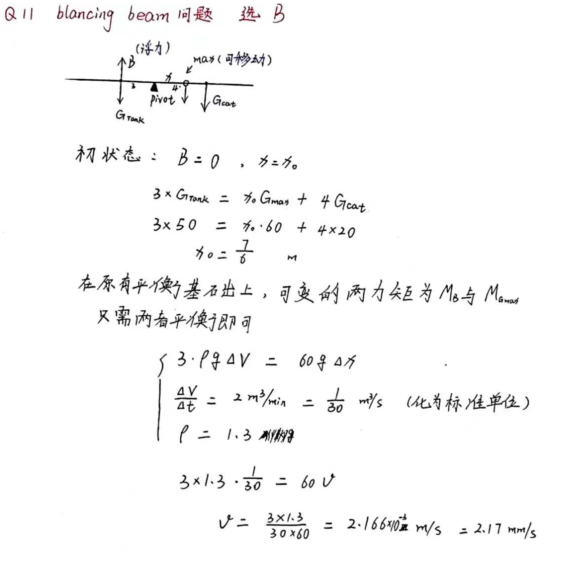 Q11 blancing beam 问题 选 B
(浮力)
B
man (可移动)
3
x
4
pivot
G_Tank
G_cat
初状态： B = 0 ， x = x₀
3 × G_Tank = x₀ G_man + 4 G_cat
3×50 = x₀·60 + 4×20
x₀ = 7/6 m
在原有平衡基础上，可变的两力矩为 M_B 与 M_Gman
只需两者平衡即可
3·ρg ΔV = 60g Δx
ΔV/Δt = 2 m³/min = 1/30 m³/s (化为标准单位)
ρ = 1.3
3×1.3·1/30 = 60 v
v = 3×1.3/30×60 = 2.166×10⁻³ m/s = 2.17 mm/s